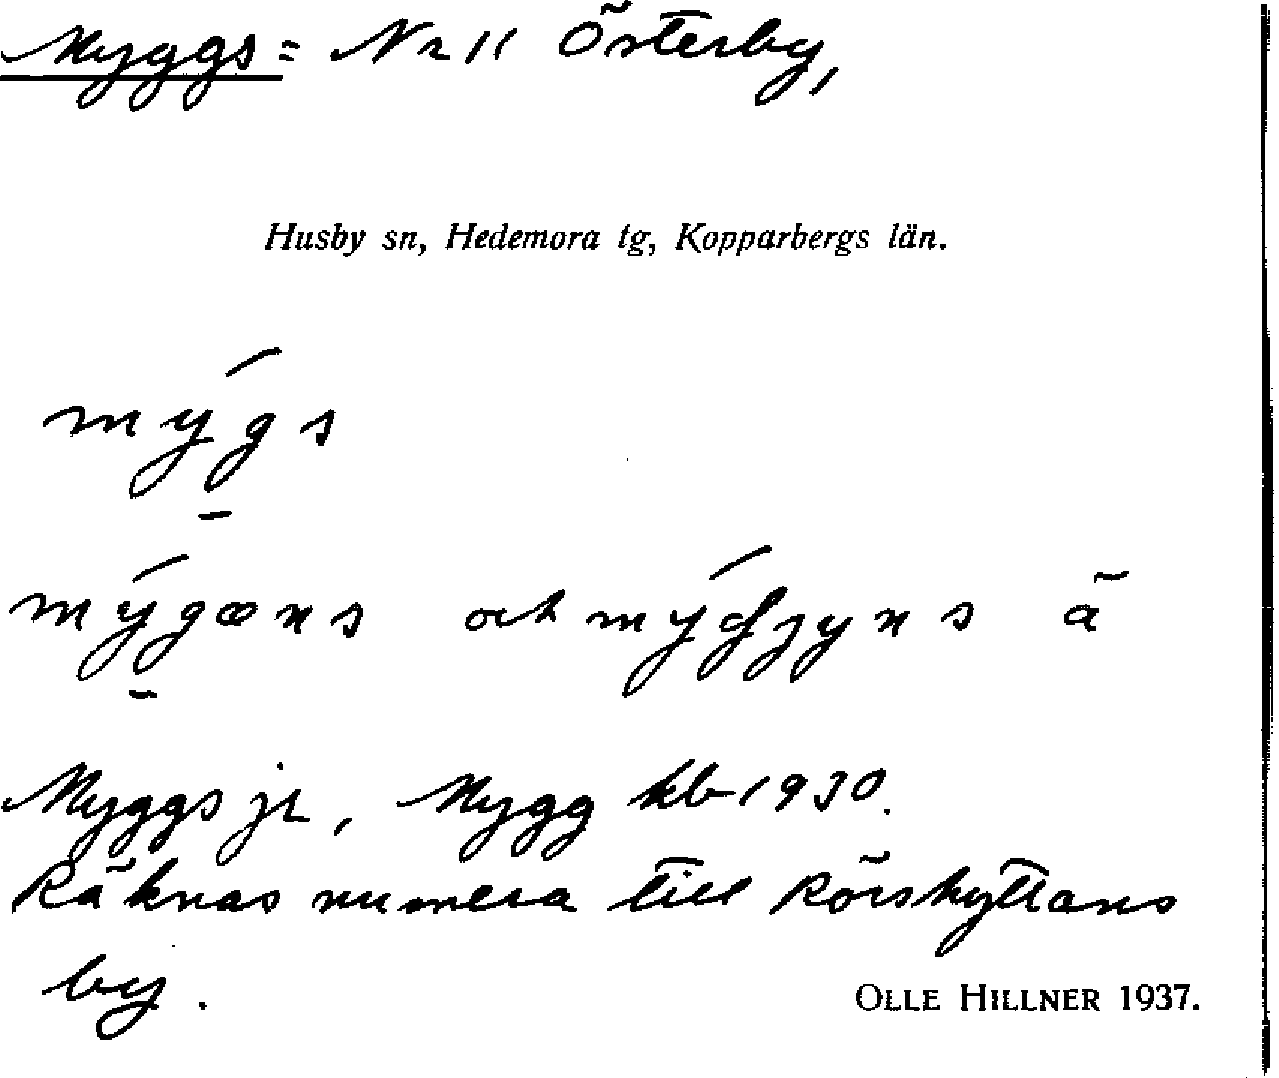 Myggs = Nr 11 Österby,
Husby sn, Hedemora tg, Kopparbergs län.
mýgs
mýgœns och mýɠȷyns ä
Myggs jr, Mygg kb 1930.
Räknas numera till Rörshyttans
by.
OLLE HILLNER 1937.